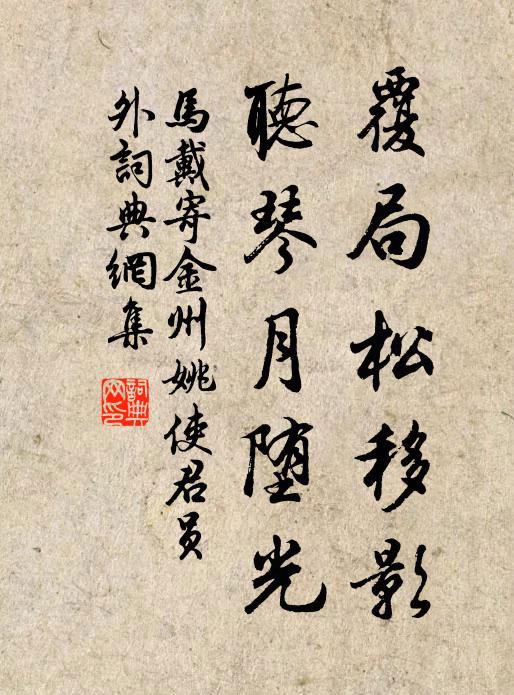 覆局松移影
聽琴月墮光
馬戴寄金州姚使君員
外詞典網集
詞典
网印